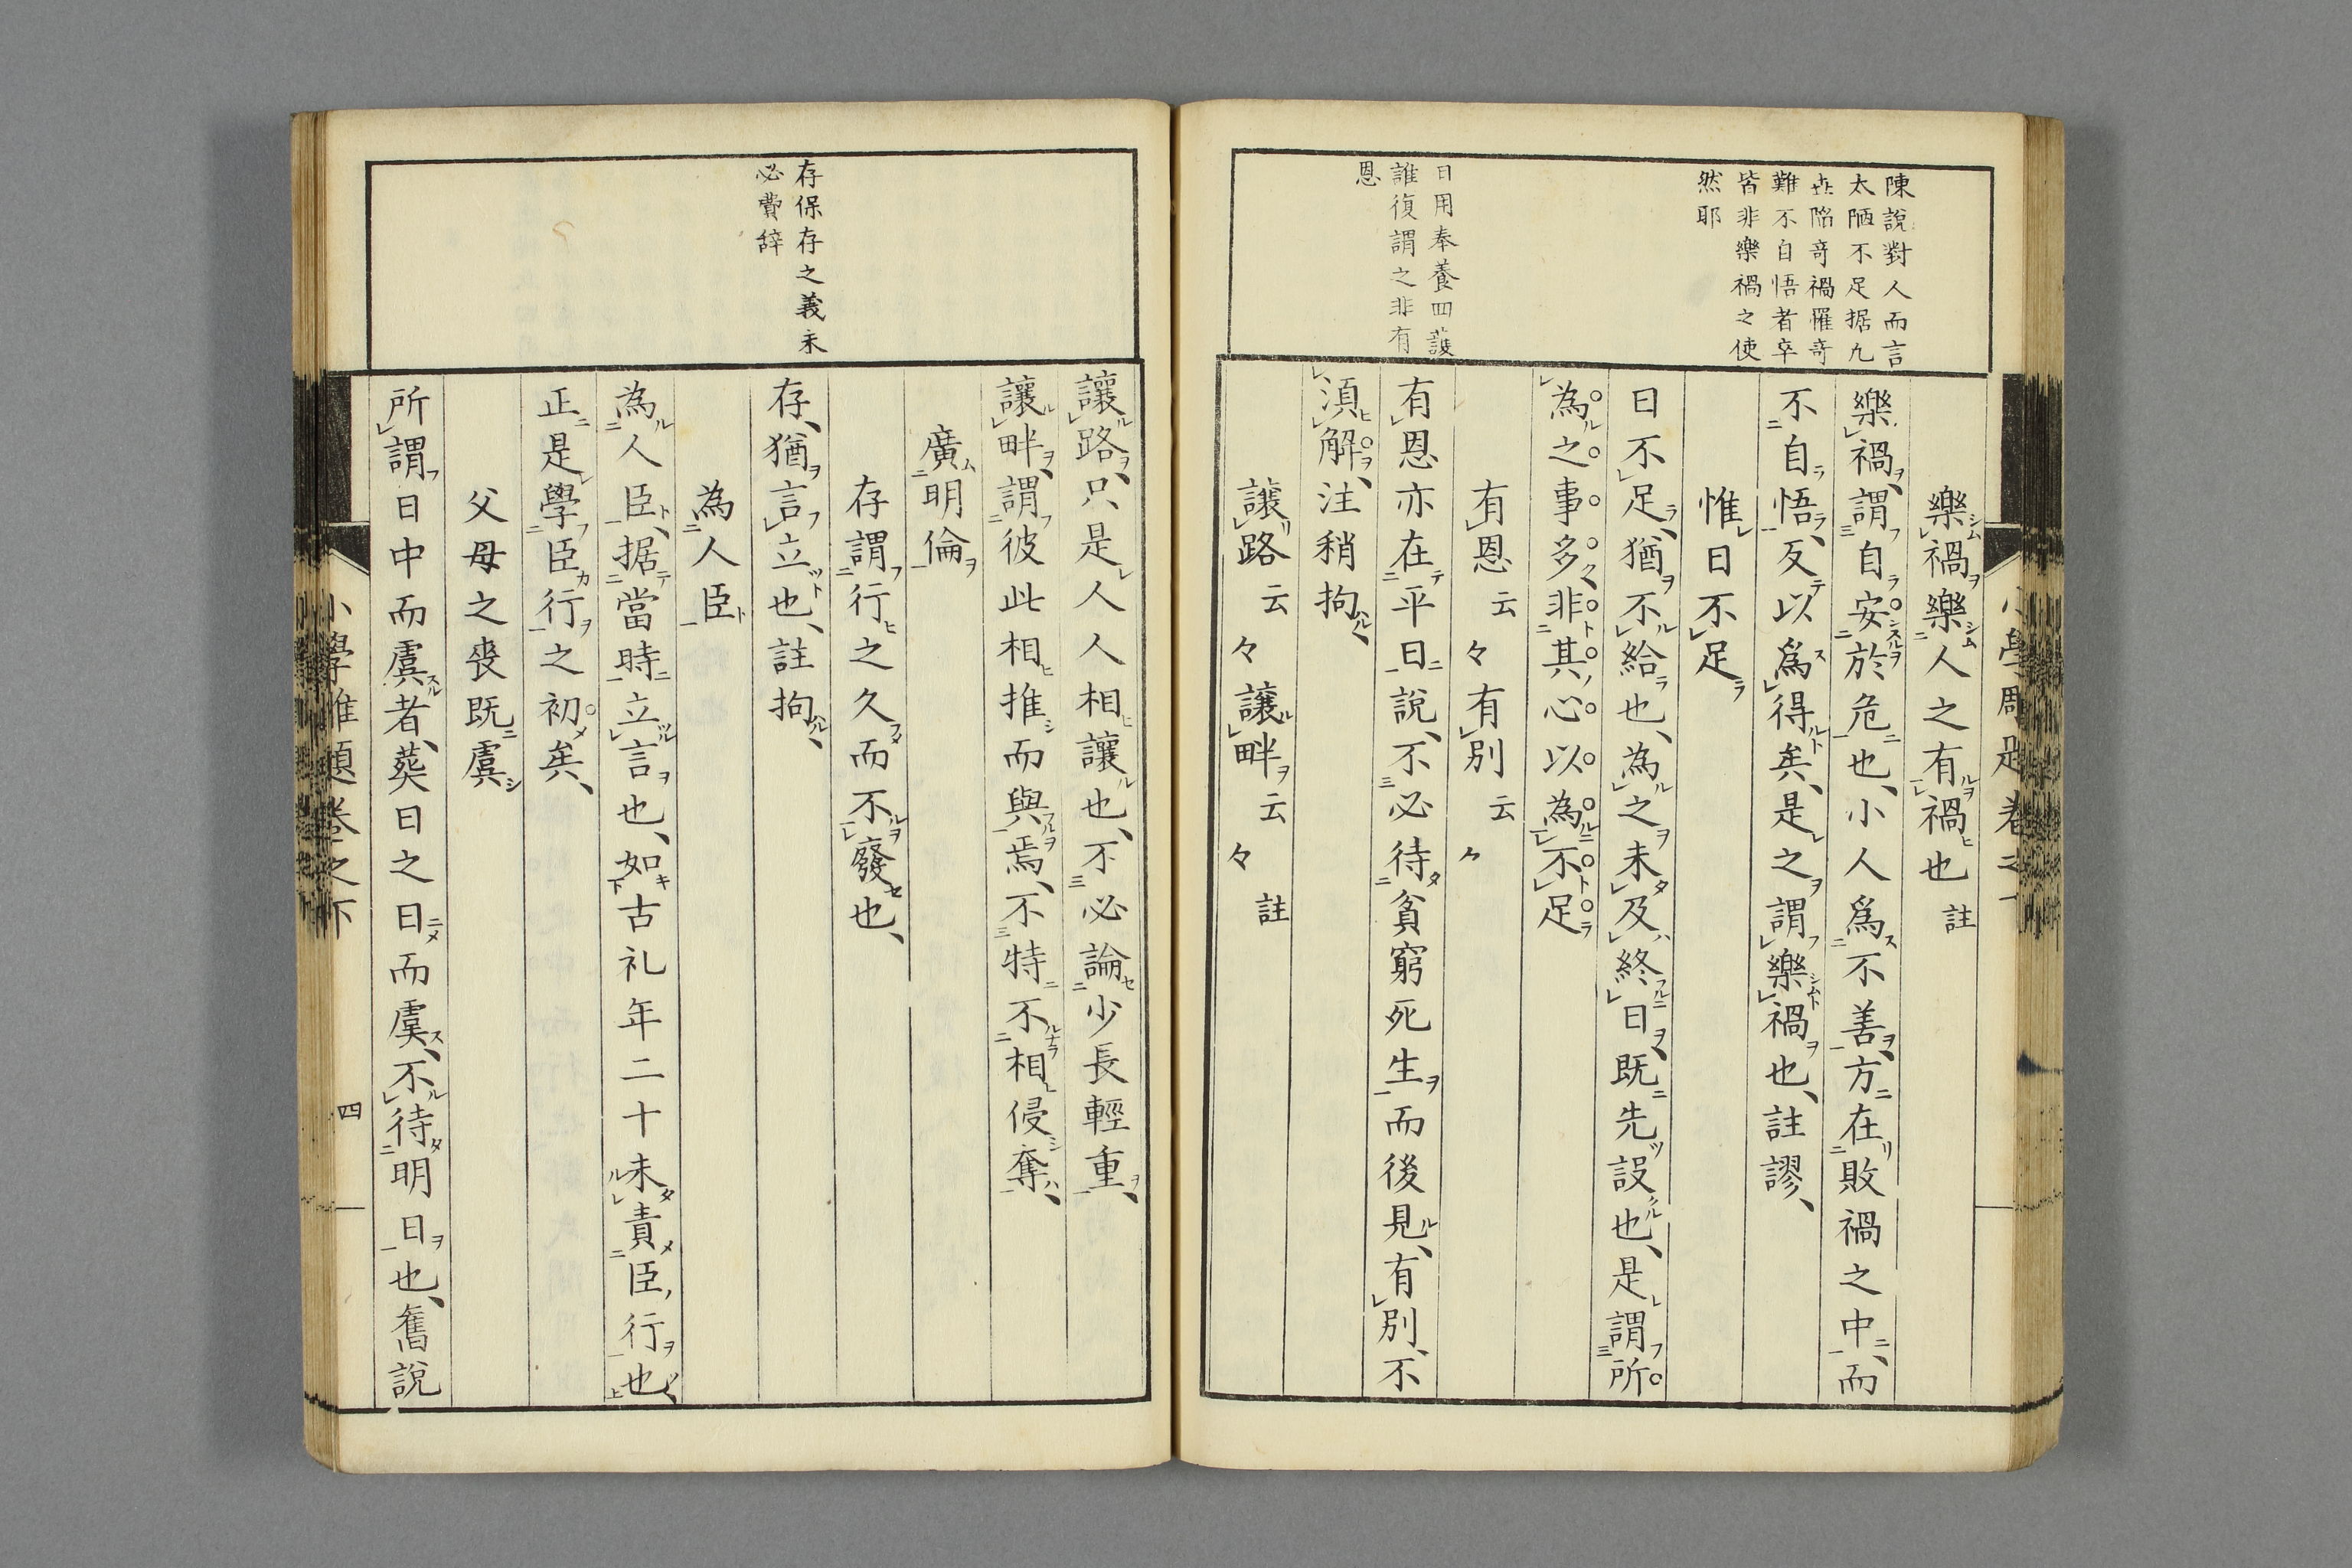 陳說對人而言
太陋不足据九
世陷竒禍罹竒
難不自悟者卒
皆非樂禍之使
然耶
日用奉養四護
誰復謂之非有
恩
樂禍樂人之有禍也 註
樂禍、謂自安於危也、小人爲不善、方在敗禍之中、而
不自悟、反以爲得矣、是之謂樂禍也、註謬、
惟日不足
日不足、猶不給也、為之未及、終日、既先設也、是謂所
為之事多、非其心以為不足
有恩云々有別云々
有恩亦在平日說、不必待貧窮死生而後見、有別、不
須解、注稍拘、
讓路云々讓畔云々 註
存保存之義未
必費辞
讓路、只是人人相讓也、不必論少長輕重、
讓畔、謂彼此相推而與焉、不特不相侵奪、
廣明倫
存謂行之久而不發也、
存、猶言立也、註拘、
為人臣
為人臣、据當時立言也、如古礼年二十未責臣行也、
正是學臣行之初矣、
父母之喪既虞
所謂日中而虞者、葬日之日而虞、不待明日也、舊說
小學惟題卷之下
四